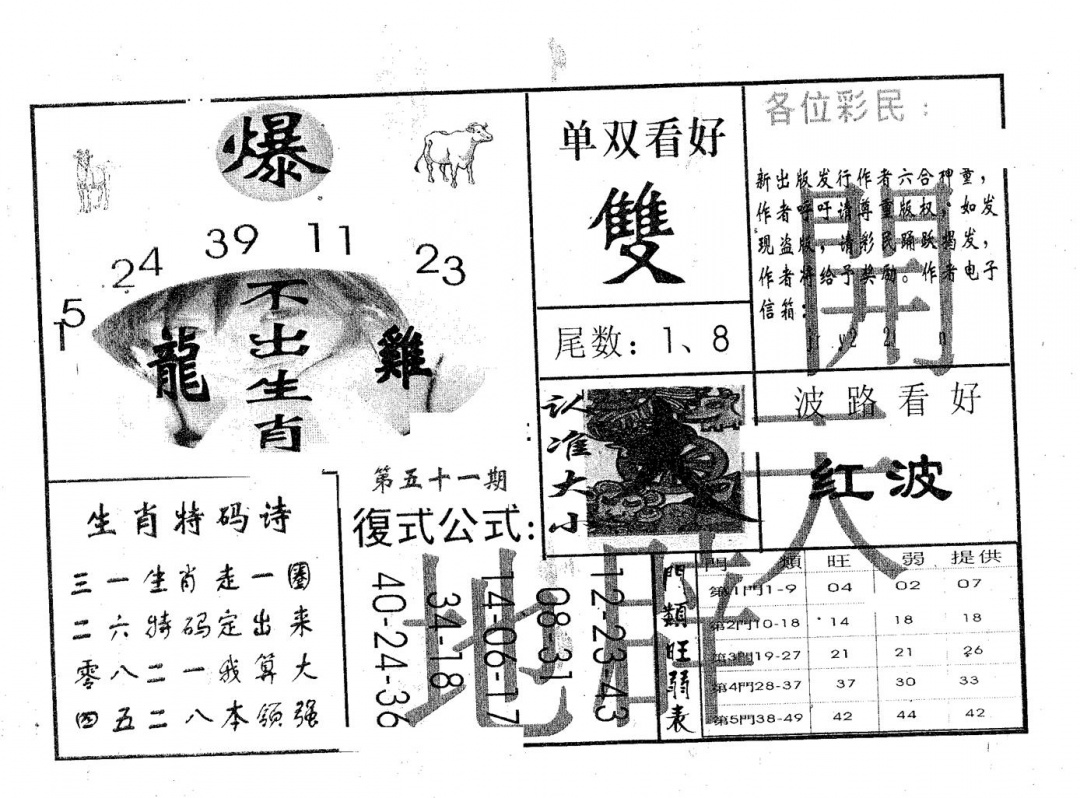 爆
15
24
39
11
23
不出生肖
龍
雞
单双看好
雙
尾数：1、8
各位彩民：
新出版发行作者六合神童，
作者呼吁请尊重版权，如发
现盗版，请彩民踊跃揭发，
作者将给予奖励。作者电子
信箱：
認准大小
波路看好
红波
開
天
地
生肖特码诗
三一生肖走一圈
二六特码定出来
零八二一我算大
四五二八本领强
第五十一期
復式公式：
40-24-36
34-18
14-06-17
08-31
12-23-43
門類旺弱表
門類 旺 弱 提供
第1門1-9 04 02 07
第2門10-18 14 18 18
第3門19-27 21 21 26
第4門28-37 37 30 33
第5門38-49 42 44 42